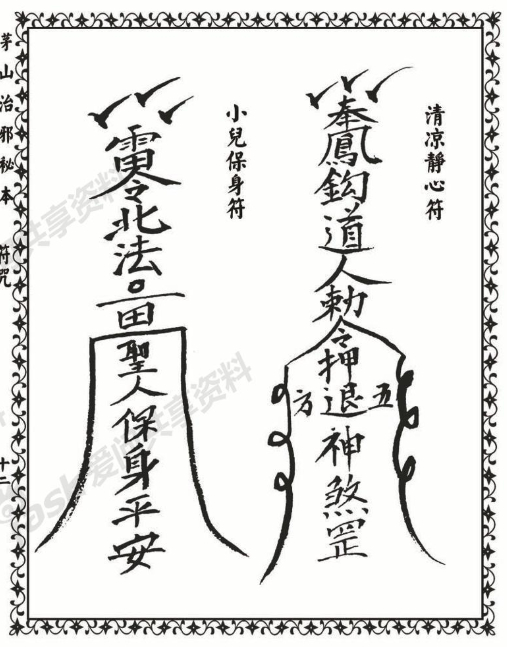 清凉靜心符
奉鳳鈎道人勅令押退
五方
神煞罡
小兒保身符
雷令北法
聖人保身平安
茅山治邪秘本 符咒 十二
共享资料
共享资料